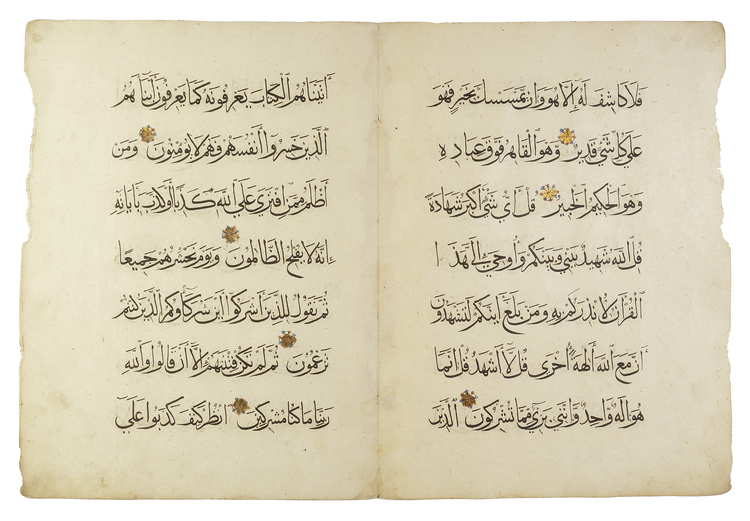 فلا كاشف له إلا هو وإن يمسسك بخير فهو
على كل شيء قدير وهو القاهر فوق عباد ه
وهو الحكيم الخبير قل أي شيء أكبر شهادة
قل الله شهيد بيني وبينكم وأوحي إلي هذ ا
القرآن لأنذركم به ومن بلغ أينكم لتشهدون
أن مع الله آلهة أخرى قل لا أشهد قل إنما
هو إله واحد وإنني بريء مما تشركون الذين
آتيناهم الكتاب يعرفونه كما يعرفون أبنا هم
الذين خسروا أنفسهم فهم لا يؤمنون ومن
أظلم ممن افترى على الله كذبا أو كذب بآياته
إنه لا يفلح الظالمون ويوم نحشرهم جميعا
ثم نقول للذين أشركوا أين شركاؤكم الذين كنتم
تزعمون ثم لم تكن فتنتهم إلا أن قالوا والله
ربنا ما كنا مشركين انظر كيف كذبوا على